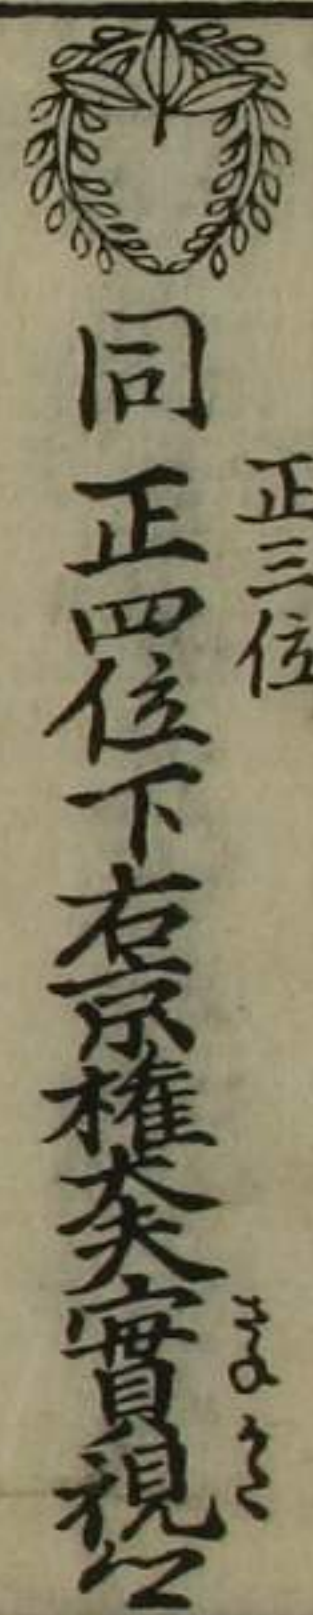 正三位
同正四位下右京権大夫實視公
さねみ